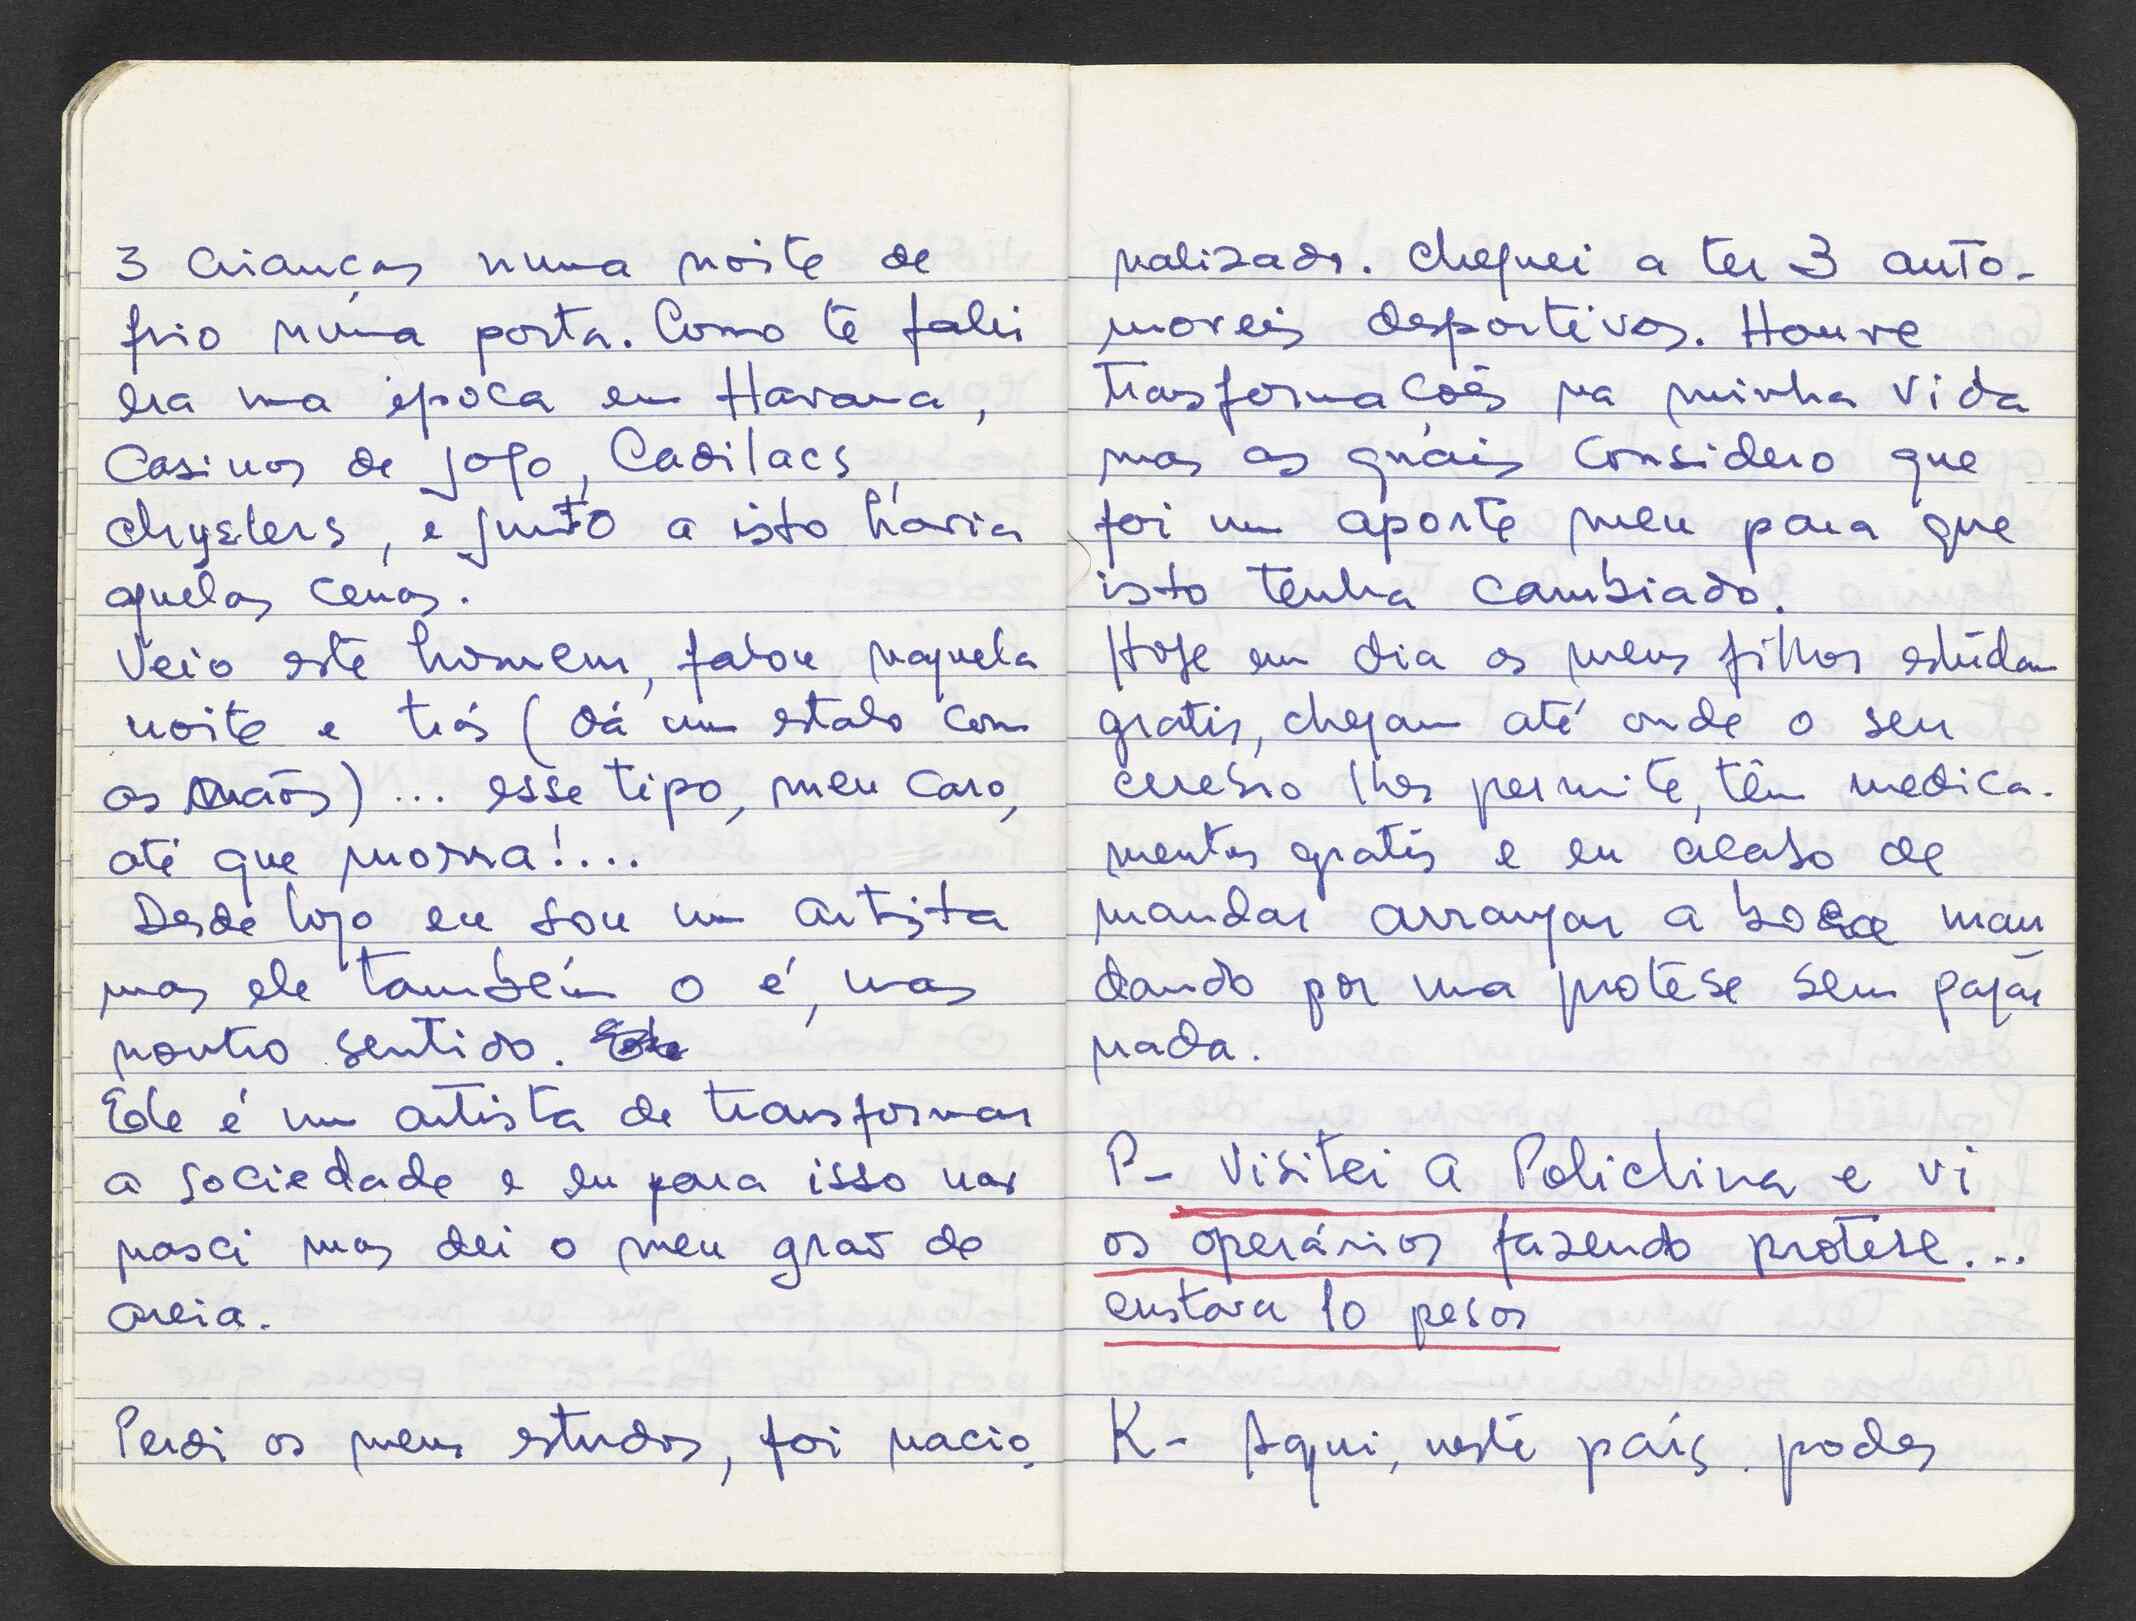 3 crianças numa noite de
frio numa porta. Como te falei
era uma época em Havana,
Casinos de jogo, Cadilacs,
chryslers, e junto a isto havia
aquelas cenas.
Veio este homem, falou naquela
noite e trás (dá um estalo com
as mãos)... esse tipo, meu caro,
até que morra!...
Desde logo eu sou um artista
mas ele também o é, mas
noutro sentido.
Ele é um artista de transformar
a sociedade e eu para isso não
nasci mas dei o meu grão de
areia.
Perdi os meus estudos, foi nacio-
nalizado. Cheguei a ter 3 auto-
moveis desportivos. Houve
trasformações na minha vida
mas as quais considero que
foi um aporte meu para que
isto tenha cambiado.
Hoje em dia os meus filhos estudam
gratis, chegam até onde o seu
cerebro lhes permite, têm medica-
mentos gratis e eu acabo de
mandar arranjar a boca man
dando por uma protese sem pagar
nada.
P- Visitei a Policlina e vi
os operários fazendo protese...
custava 10 pesos
K- Aqui, neste país, podes